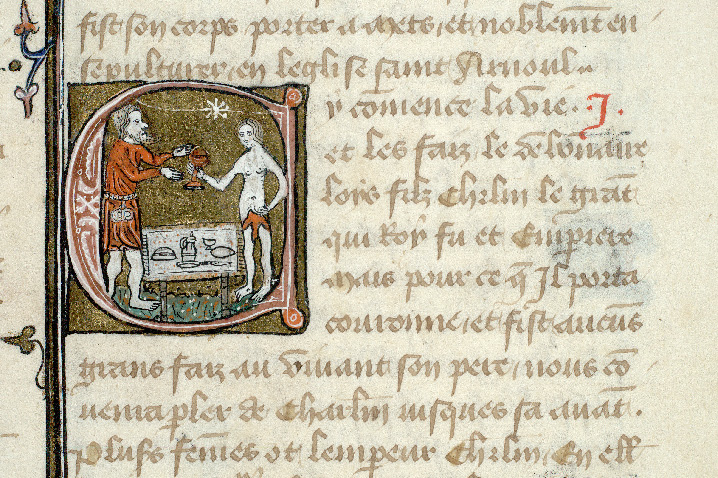 fist son corps porter a mets, et noblemt en
sepulturer, en leglise saint Arnoul..
Cy cōmence la vie. J.
et les faiz le debōnaire
loys filz Chrlm le grāt
qui Roy fu et Empiere
Mais pour ce q̄ Il porta
couronne, et fist aucūs
grans faiz au vivant son pere, nous cō
venra pler de Charlm iusques sa avāt.
Plusrs femes ot lempeur Chrlm, En ell